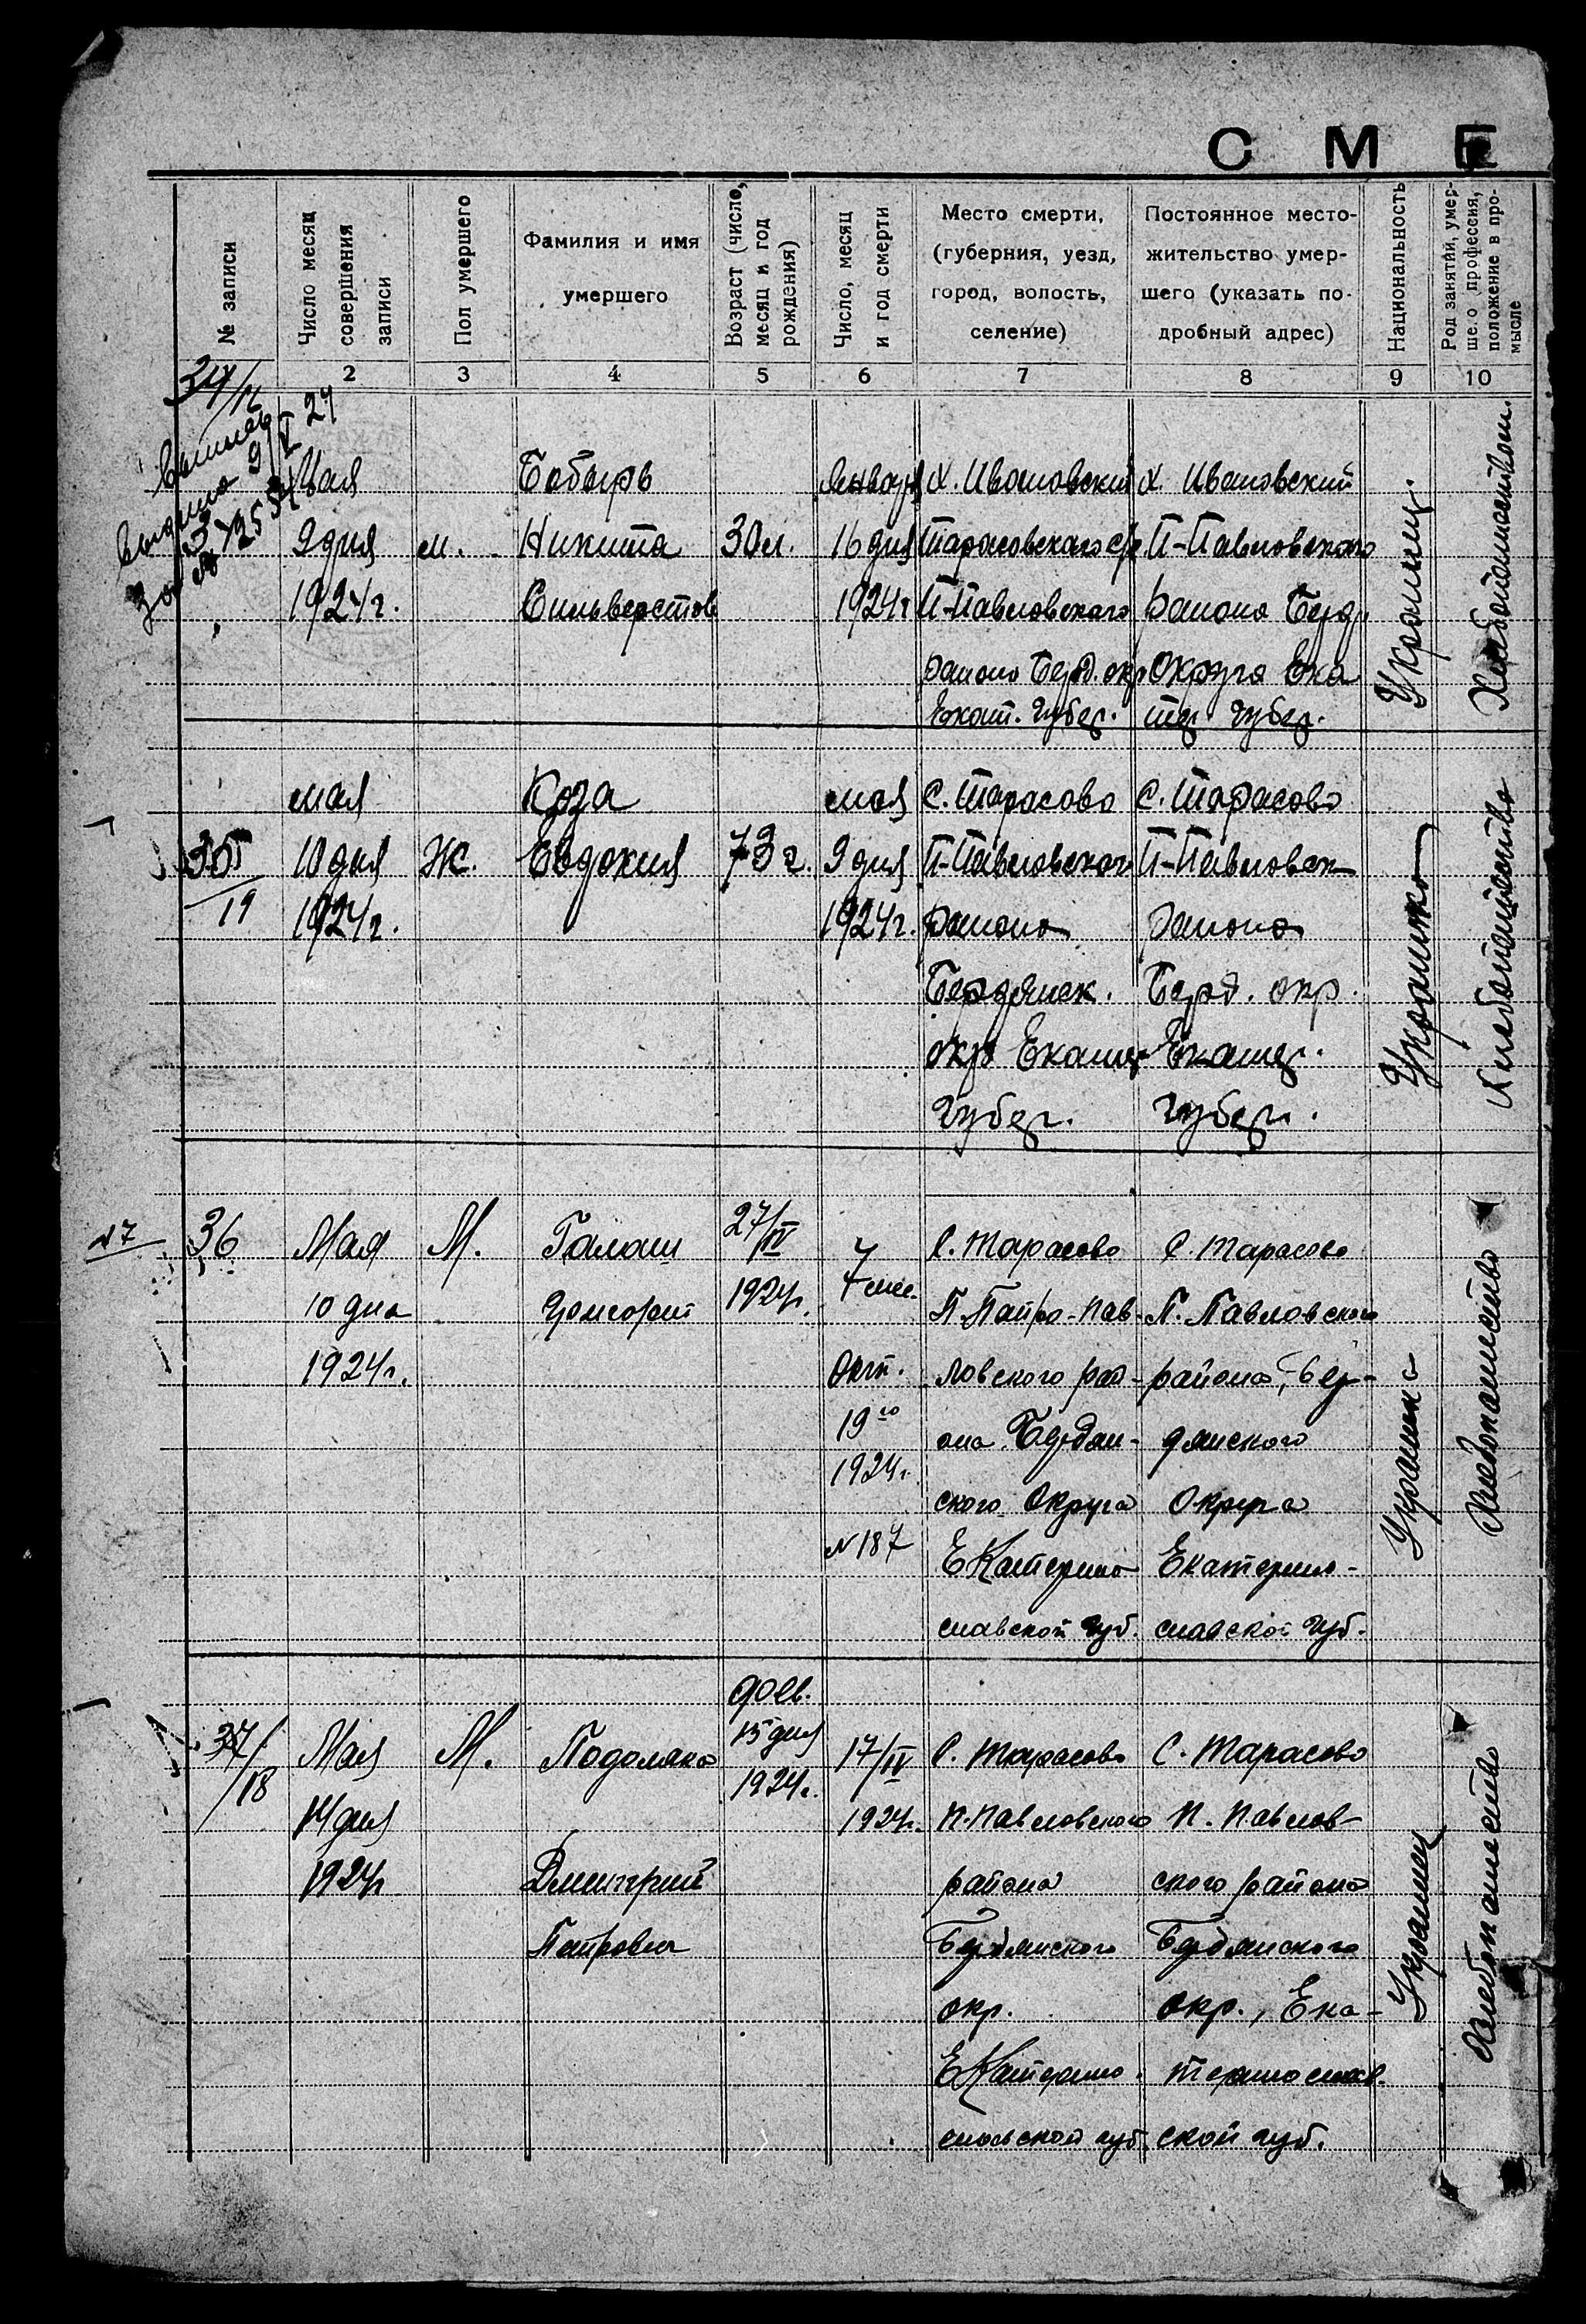 С М Е
№ записи
Число месяц совершения записи
Пол умершего
Фамилия и имя умершего
Возраст (число, месяц и год рождения)
Число, месяц и год смерти
Место смерти, (губерния, уезд, город, волость, селение)
Постоянное место-жительство умер-шего (указать по-дробный адрес)
Национальность
Род занятий, умер-ше.о профессия, положение в про-мысле
2 3 4 5 6 7 8 9 10
34/16
выдана 9/V 24
Мая
9 дня
1924 г.
м.
Бабырь
Никита
Сильверстов
30 л.
Января
16 дня
1924 г
х. Ивановский
Тарасовского с/с
П-Павловского
района Берд. окр
Екат. Губер.
х. Ивановский
П-Павловского
района Берд.
округа Ека
тер. Губер.
Украинец.
Хлебопашеством.
35/19
мая
10 дня
1924 г.
Ж.
Коза
Евдокия
73 г.
мая
9 дня
1924 г.
С. Тарасово
П-Павловского
района
Бердянск.
окр Екатер
Губер.
С. Тарасово
П-Павловск
района
Берд. окр.
Екатер.
Губер.
Украинка
Хлебопашество
№ 7
36
Мая
10 дня
1924 г.
М.
Галаш
Григорий
27/IV
1924 г.
7
Окт.
19го
1924 г.
№ 187
С. Тарасово
П. Петро-Пав-
ловского рай-
она Бердян-
ского Округа
Екатерино
славской Губ.
С. Тарасово
П. Павловского
района, Бер-
дянского
Округа
Екатерино-
славской Губ.
Украинец
Хлебопашество
37/18
Мая
14 дня
1924 г
М.
Подоляка
Дмитрий
Петрович
Фев.
15 дня
1924 г.
17/IV
1924 г.
С. Тарасово
П-Павловского
района
Бердянского
окр.
Екатерино-
славской губ.
С. Тарасово
П. Павлов-
ского района
Бердянского
окр., Ека-
теринослав.
ской губ.
Украинец
Хлебопашество